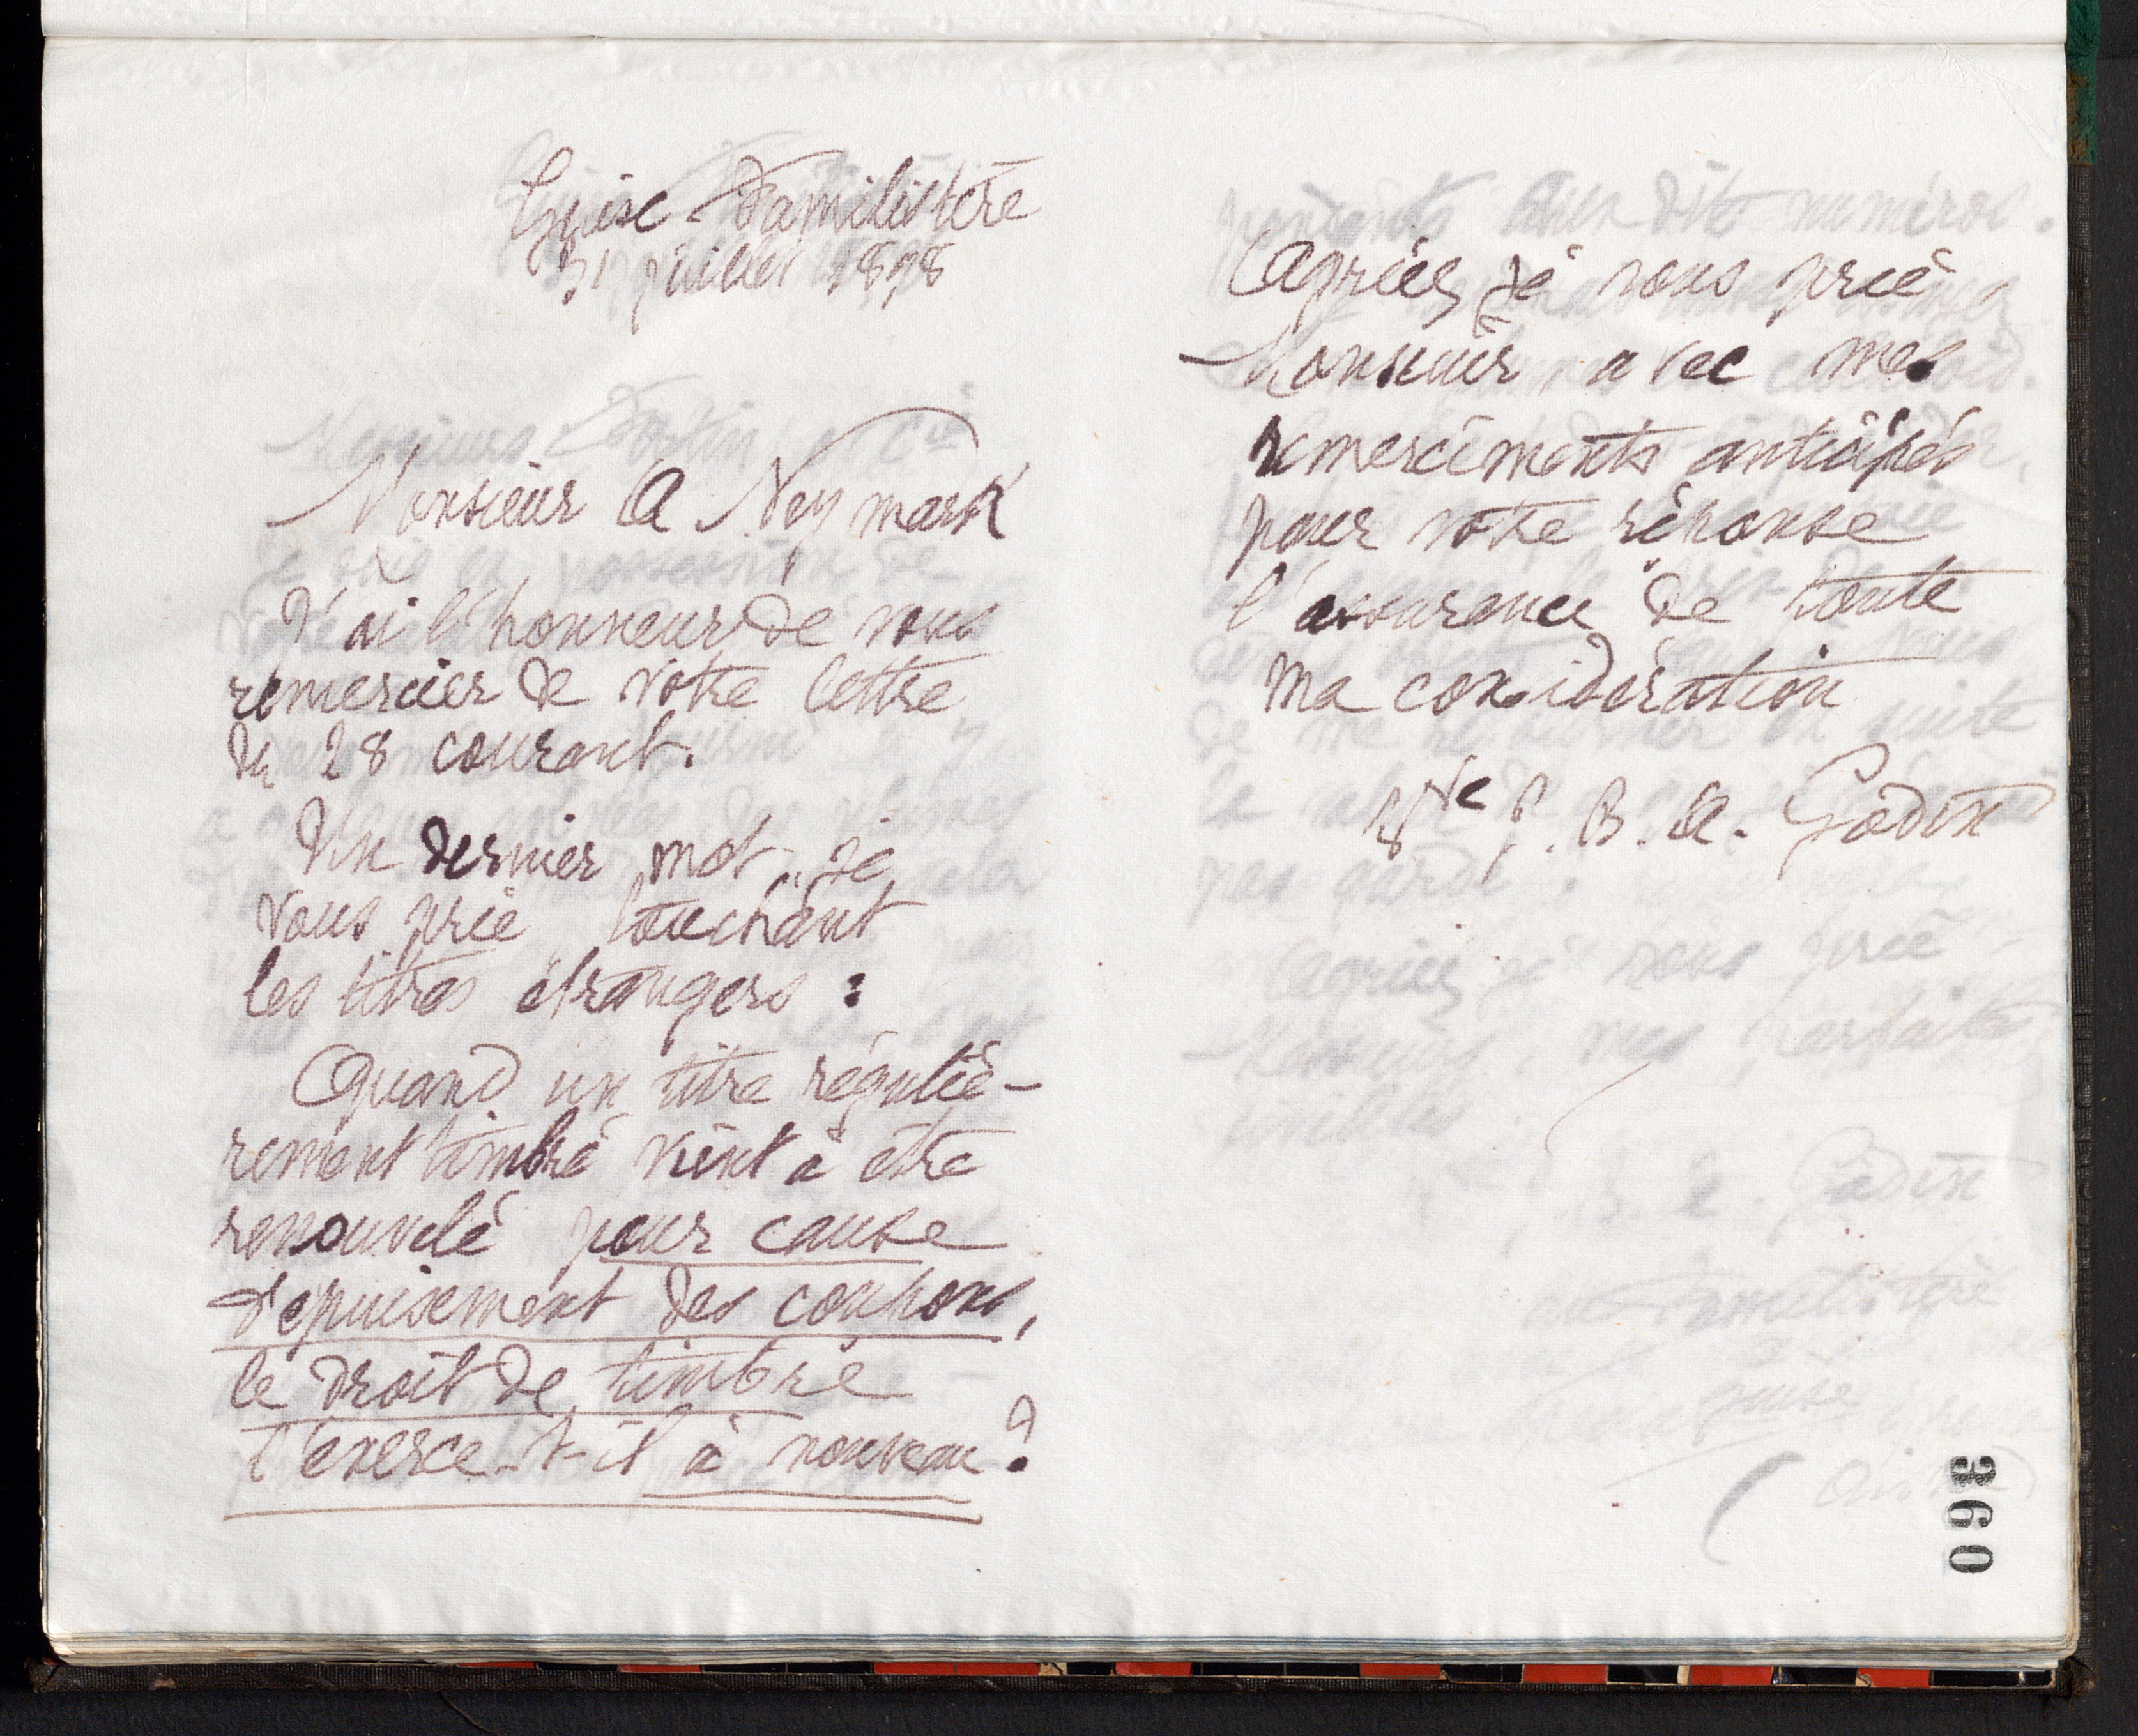 Guise Familistère
31 juillet 1898
Monsieur A Neymark
J'ai l'honneur de vous
remercier de votre lettre
du 28 courant.
Un dernier mot, je
vous prie touchant
les titres étrangers :
Quand un titre réguliè-
rement timbré vient à être
renouvelé pour cause
d'épuisement des coupons,
le droit de timbre
s'exerce-t-il à nouveau ?
Agréez je vous prie
Monsieur, avec mes
remerciments anticipés
pour votre réponse
l'assurance de toute
ma considération
Vve J. B. A. Godin
360